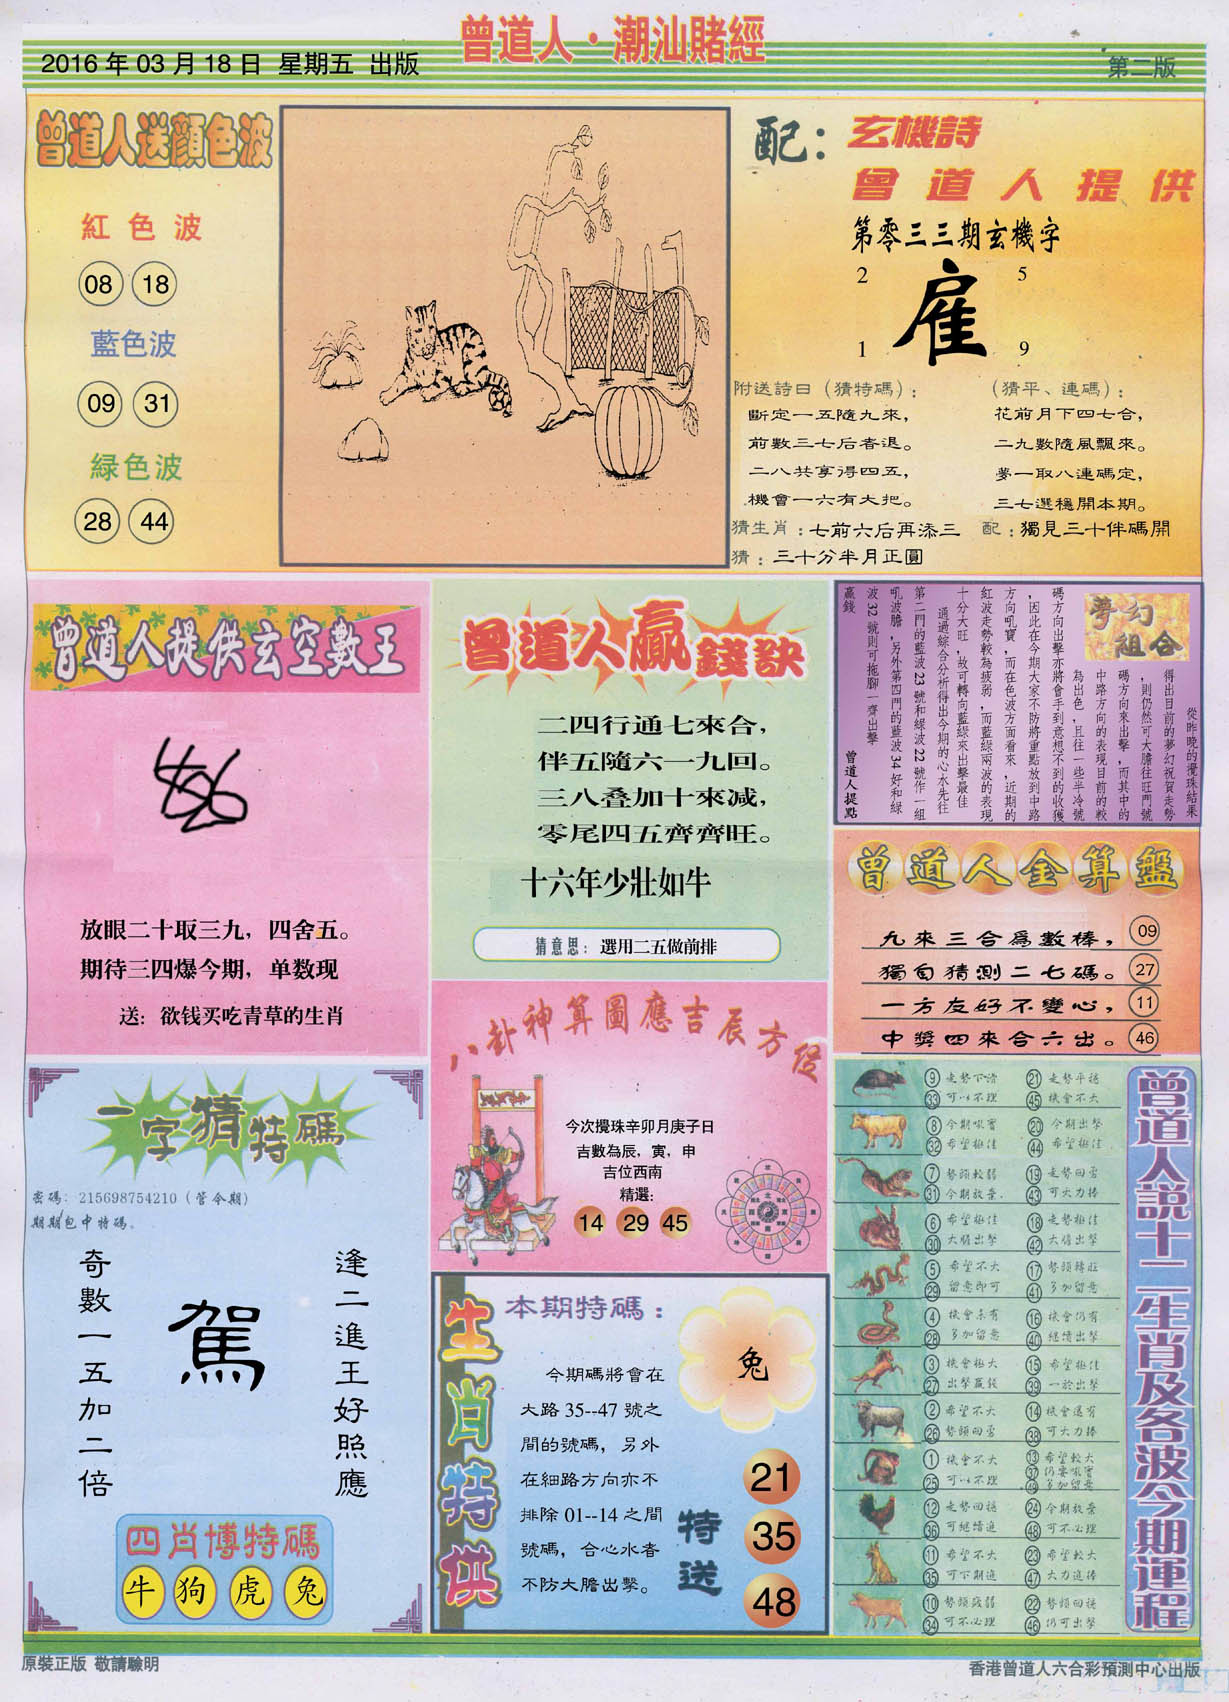 曾道人·潮汕賭經
2016年03月18日 星期五 出版
第二版
曾道人送顏色波
紅色波
08 18
藍色波
09 31
緑色波
28 44
配：玄機詩
曾道人提供
第零三三期玄機字
2 5
雇
1 9
附送詩曰（猜特碼）：
斷定一五隨九來，
前數三七后者退。
二八共享得四五，
機會一六有大把。
（猜平、連碼）：
花前月下四七合，
二九數隨風飄來。
夢一取八連碼定，
三七選穩開本期。
猜生肖：七前六后再添三
配：獨見三十伴碼開
猜：三十分半月正圓
曾道人提供玄空數王
放眼二十取三九，四舍五。
期待三四爆今期，单数现
送：欲钱买吃青草的生肖
曾道人贏錢訣
二四行通七來合，
伴五隨六一九回。
三八叠加十來减，
零尾四五齊齊旺。
十六年少壯如牛
猜意思：選用二五做前排
夢幻組合
從昨晚的攪珠結果
得出目前的夢幻祝賀走勢
，則仍然可大膽往旺門號
碼方向來出擊，而其中的
中路方向的表現目前的較
為出色，且往一些半冷號
碼方向出擊亦將會手到意想不到的收獲
，因此在今期大家不防將重點放到中路
方向吼寶，而在色波方面看來，近期的
紅波走勢較為疲弱，而藍緑兩波的表現
十分大旺，故可轉向藍緑來出擊最佳
通過綜合分析得出今期的心水先往
第二門的藍波23號和緑波22號作一組
吼波膽，另外第四門的藍波34好和緑
波32號則可拖腳一齊出擊
贏錢
曾道人提點
曾道人金算盤
九來三合爲數棒， 09
獨自猜測二七碼。 27
一方友好不變心， 11
中獎四來合六出。 46
八卦神算圖應吉辰方位
今次攪珠辛卯月庚子日
吉數為辰，寅，申
吉位西南
精選：
14 29 45
一字猜特碼
密碼：215698754210（管令期）
期期包中特碼。
奇數一五加二倍
駕
逢二進王好照應
四肖博特碼
牛 狗 虎 兔
生肖特供
本期特碼：
兔
今期碼將會在
大路35--47號之
間的號碼，另外
在細路方向亦不
排除01--14之間
號碼，合心水者
不防大膽出擊。
特送
21
35
48
9 走勢下滑 21 走勢平穩
33 可以不理 45 機會不大
8 今期吼寶 20 今期出擊
32 希望極佳 44 希望極佳
7 勢頭較弱 19 走勢回勇
31 今期放棄. 43 可大力捧
6 希望極佳 18 走勢極佳
30 大膽出擊 42 大膽出擊
5 希望不大 17 勢頭轉旺
29 留意即可 41 多加留意
4 機會未有 16 機會仍有
28 多加留意 40 繼續出擊
3 機會極大 15 希望極佳
27 出擊贏錢 39 一於出擊
2 希望不大 14 機會還有
26 勢頭回勇 38 可大力捧
1 機會不大 13 希望較大
25 可以不理 37 仍要吼寶
49 多加留意
12 走勢回穩 24 今期放棄
36 可繼續追 48 可不心理
11 希望不大 23 希望較大
35 可下期追 47 大力追捧
10 勢頭疲弱 22 勢頭回穩
34 可不心理 46 仍可出擊
曾道人説十二生肖及各波今期運程
原裝正版 敬請驗明
香港曾道人六合彩預測中心出版